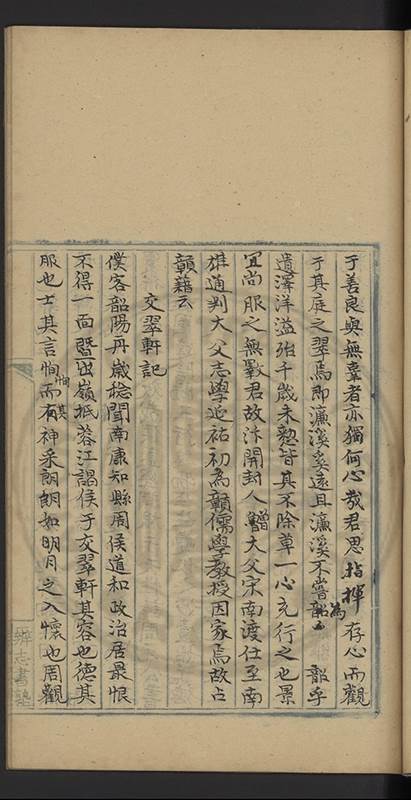 于善良與無辜者亦獨何心哉君思指揮存心而觀
于其庭之翠焉即濂溪奚遠且濂溪不嘗為韶乎
遺澤洋溢殆千歲未艾皆其不除草一心充行之也景
宜尚服之無斁君故汴開封人曾大父宋南渡仕至南
雄通判大父志學延祐初為贛儒學教授因家焉故占
贛藉云
交翠軒記
僕客韶陽丹歲稔聞南康知縣周侯道和政治居最恨
不得一面暨出嶺抵蓉江謁侯于交翠軒其容也德其
服也士其言恂恂而有其神采朗朗如明月之入懷也周觀